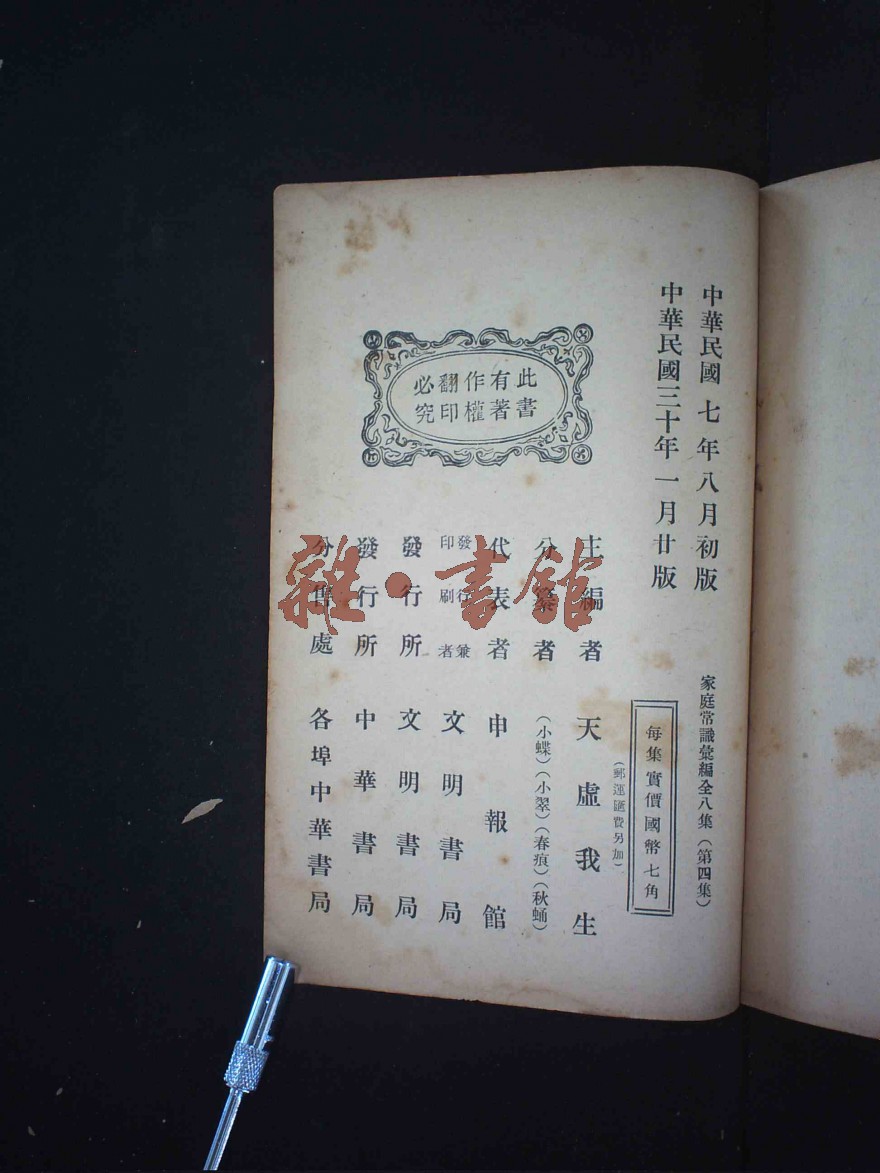 中華民國七年八月初版
中華民國三十年一月廿版
家庭常識彙編全八集（第四集）
每集實價國幣七角
（郵運匯費另加）
主編者 天虛我生
分纂者 （小蝶）（小翠）（春痕）（秋蛹）
代表者 申報館
發行兼印刷者 文明書局
發行所 文明書局
發行所 中華書局
分售處 各埠中華書局
此書有著作權翻印必究
雜·書館